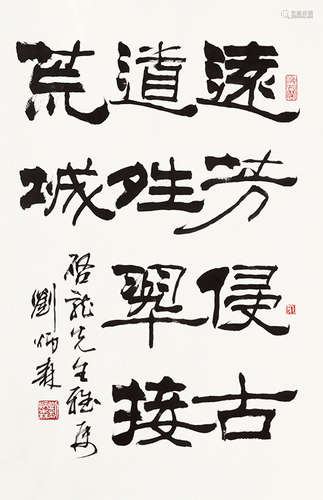 遠芳侵古
道夝翠接
荒城
啓龍先生雅屬
劉炳森